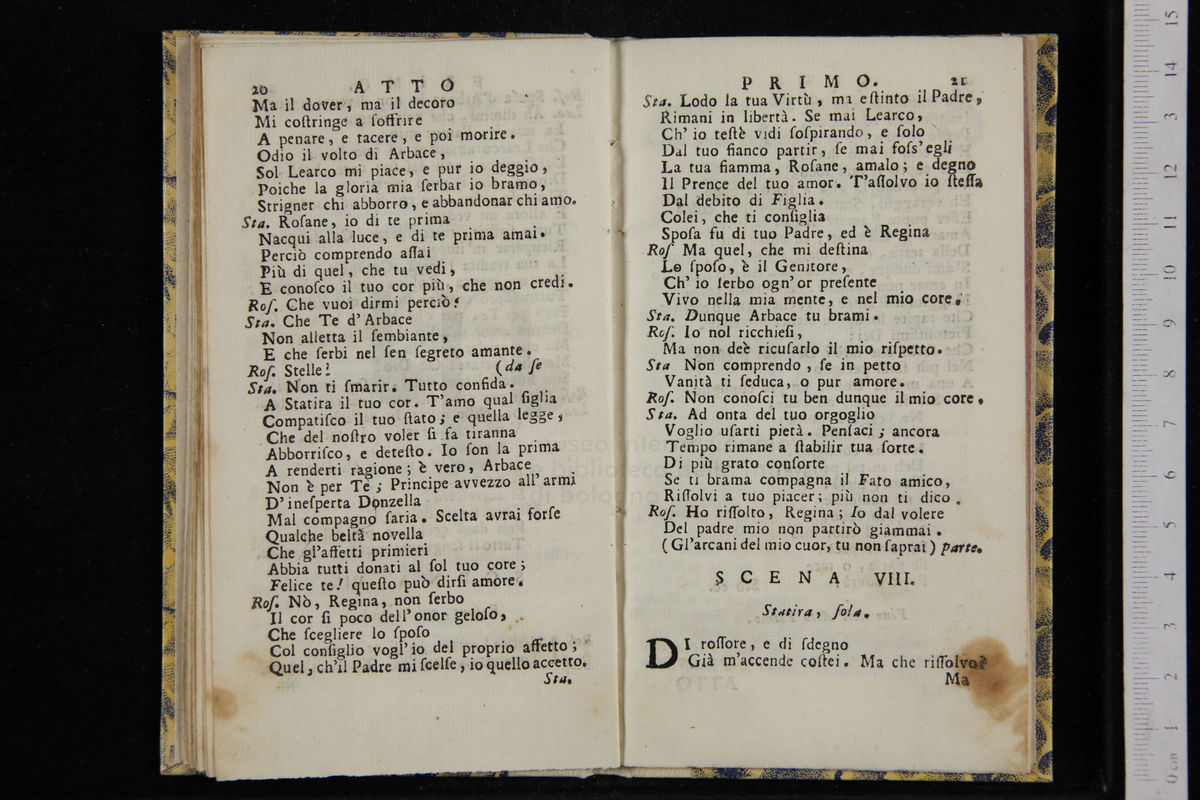 20 ATTO
Ma il dover, ma il decoro
Mi coſtringe a ſoffrire
A penare, e tacere, e poi morire.
Odio il volto di Arbace,
Sol Learco mi piace, e pur io deggio,
Poiche la gloria mia ſerbar io bramo,
Strigner chi abborro, e abbandonar chi amo.
Sta. Roſane, io di te prima
Nacqui alla luce, e di te prima amai.
Perciò comprendo aſſai
Più di quel, che tu vedi,
E conoſco il tuo cor più, che non credi.
Roſ. Che vuoi dirmi perciò?
Sta. Che Te d' Arbace
Non alletta il ſembiante,
E che ſerbi nel ſen ſegreto amante.
Roſ. Stelle! (da ſe
Sta. Non ti ſmarir. Tutto confida.
A Statira il tuo cor. T'amo qual figlia
Compatiſco il tuo ſtato; e quella legge,
Che del noſtro voler ſi fa tiranna
Abborriſco, e deteſto. Io ſon la prima
A renderti ragione; è vero, Arbace
Non è per Te; Principe avvezzo all' armi
D' ineſperta Donzella
Mal compagno ſaria. Scelta avrai forſe
Qualche beltà novella
Che gl'affetti primieri
Abbia tutti donati al ſol tuo core;
Felice te! queſto può dirſi amore.
Roſ. Nò, Regina, non ſerbo
Il cor ſi poco dell' onor geloſo,
Che ſcegliere lo ſpoſo
Col conſiglio vogl'io del proprio affetto;
Quel, ch'il Padre mi ſcelſe, io quello accetto.
Sta.
PRIMO. 21
Sta. Lodo la tua Virtù, ma eſtinto il Padre,
Rimani in libertà. Se mai Learco,
Ch' io teſtè vidi ſoſpirando, e ſolo
Dal tuo fianco partir, ſe mai foſs' egli
La tua fiamma, Roſane, amalo; e degno
Il Prence del tuo amor. T'aſſolvo io ſteſſa
Dal debito di Figlia.
Colei, che ti conſiglia
Spoſa fu di tuo Padre, ed è Regina
Roſ Ma quel, che mi deſtina
Lo ſpoſo, è il Genitore,
Ch' io ſerbo ogn' or preſente
Vivo nella mia mente, e nel mio core.
Sta. Dunque Arbace tu brami.
Roſ. Io nol ricchieſi,
Ma non deè ricuſarlo il mio riſpetto.
Sta Non comprendo, ſe in petto
Vanità ti ſeduca, o pur amore.
Roſ. Non conoſci tu ben dunque il mio core.
Sta. Ad onta del tuo orgoglio
Voglio uſarti pietà. Penſaci; ancora
Tempo rimane a ſtabilir tua ſorte.
Di più grato conſorte
Se ti brama compagna il Fato amico,
Riſſolvi a tuo piacer; più non ti dico.
Roſ. Ho riſſolto, Regina; Io dal volere
Del padre mio non partirò giammai.
(Gl'arcani del mio cuor, tu non ſaprai) parte.
SCENA VIII.
Statira, ſola.
DI roſſore, e di ſdegno
Già m'accende coſtei. Ma che riſſolvo?
Ma